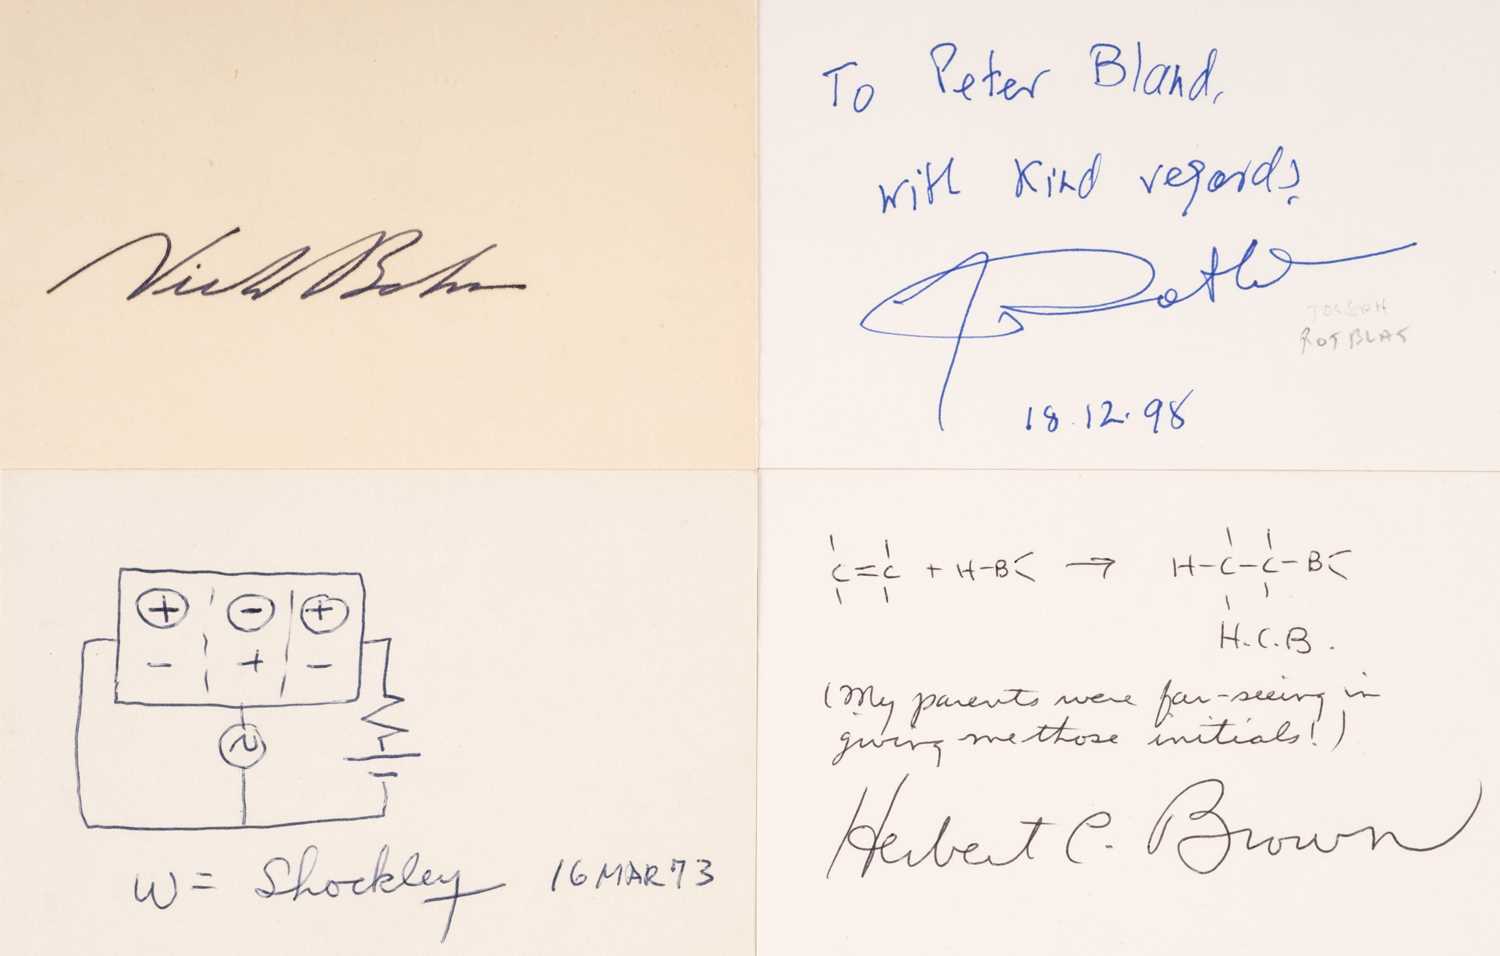 Niels Bohr
To Peter Bland,
with kind regards,
J Rotbl
JOSEPH
ROTBLAT
18.12.98
+ - +
- + -
W= Shockley 16 MAR 73
C=C + H-B< → H-C-C-B<
H.C.B.
(My parents were far-seeing in
giving me those initials!)
Herbert C. Brown